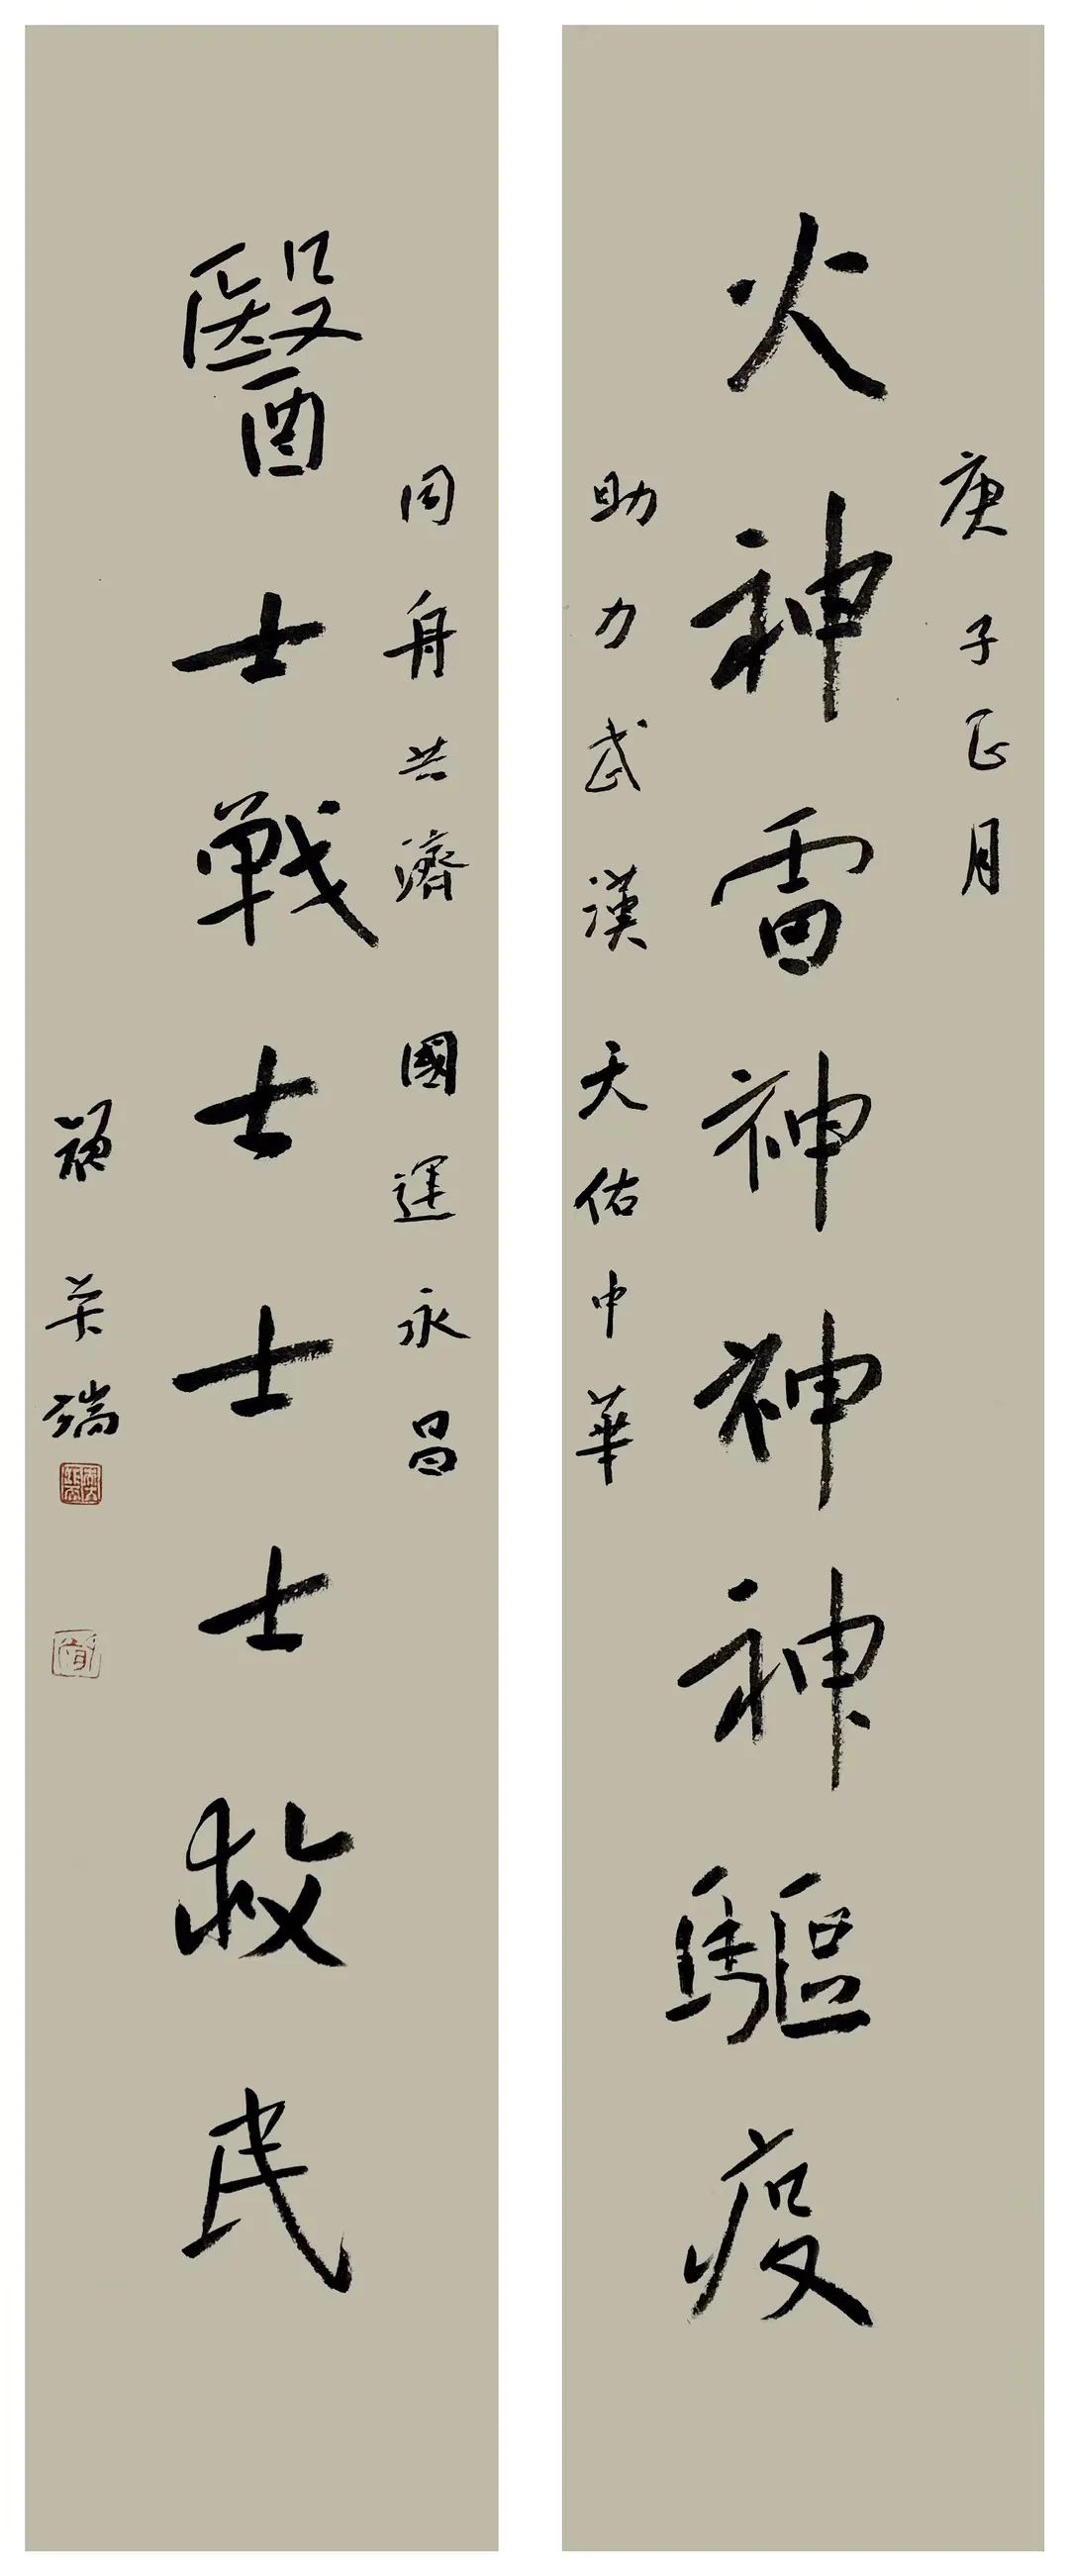 庚子正月
火神雷神神神驅疫
助力武漢天佑中華
同舟共濟國運永昌
醫士戰士士士救民
英瑞